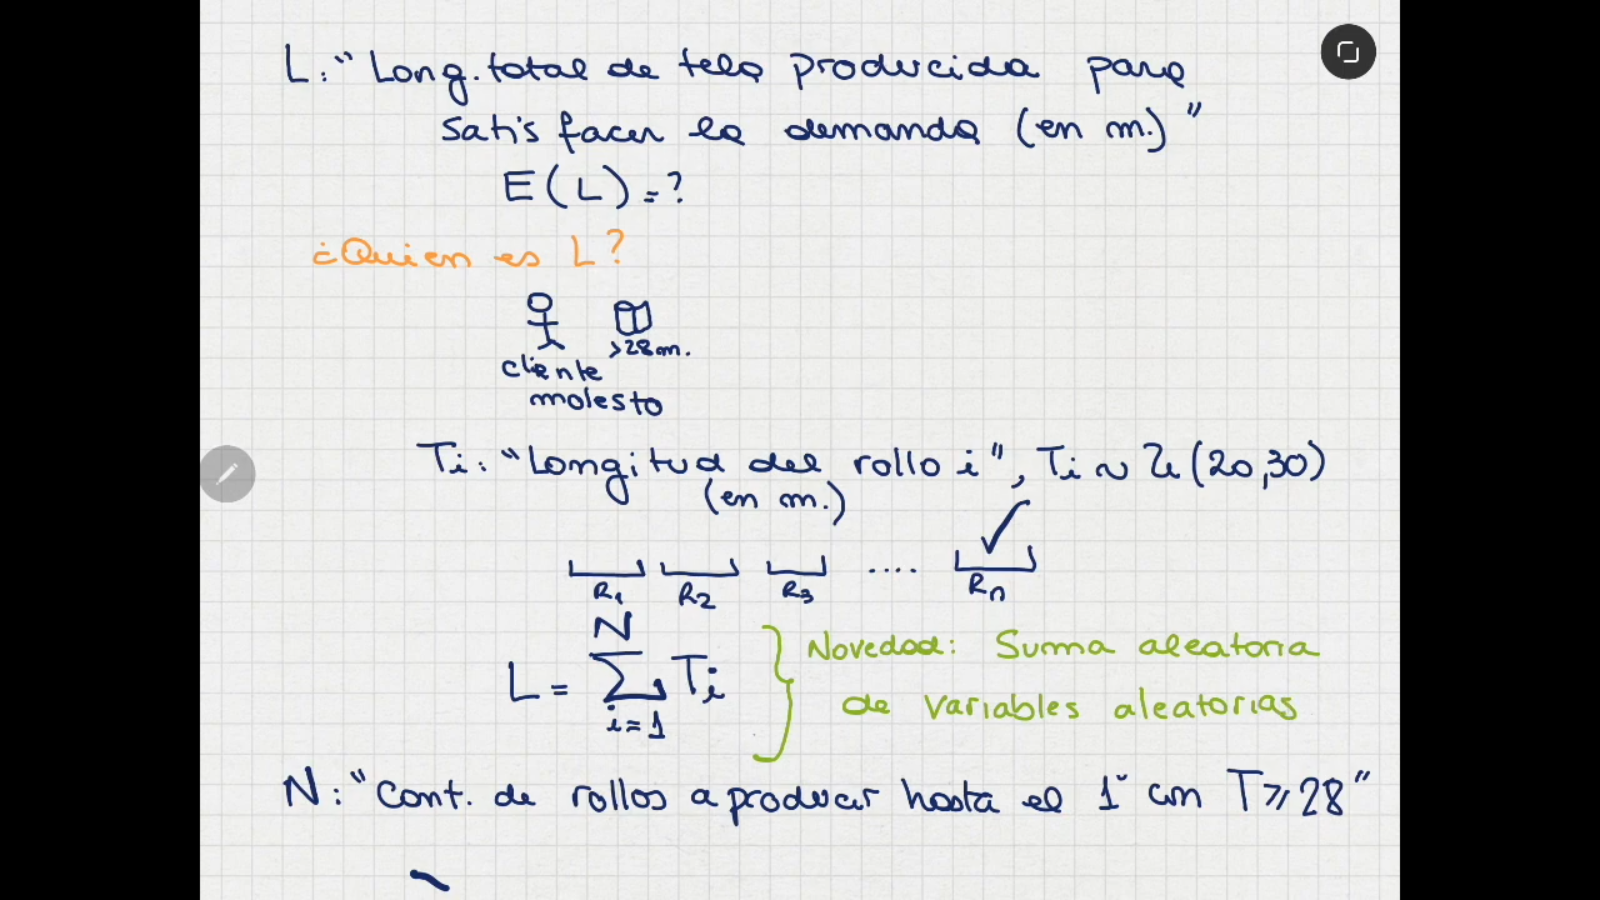 L: "Long. total de tela producida para
satisfacer la demanda (en m.)"
E(L) = ?
¿Quien es L?
>28m.
cliente
molesto
Ti: "Longitud del rollo i", Ti ~ U(20,30)
(en m.)
R1 R2 R3 .... Rn
L = N∑i=1 Ti
Novedad: Suma aleatoria
de variables aleatorias
N: "Cant. de rollos a producir hasta el 1° con T ≥ 28"